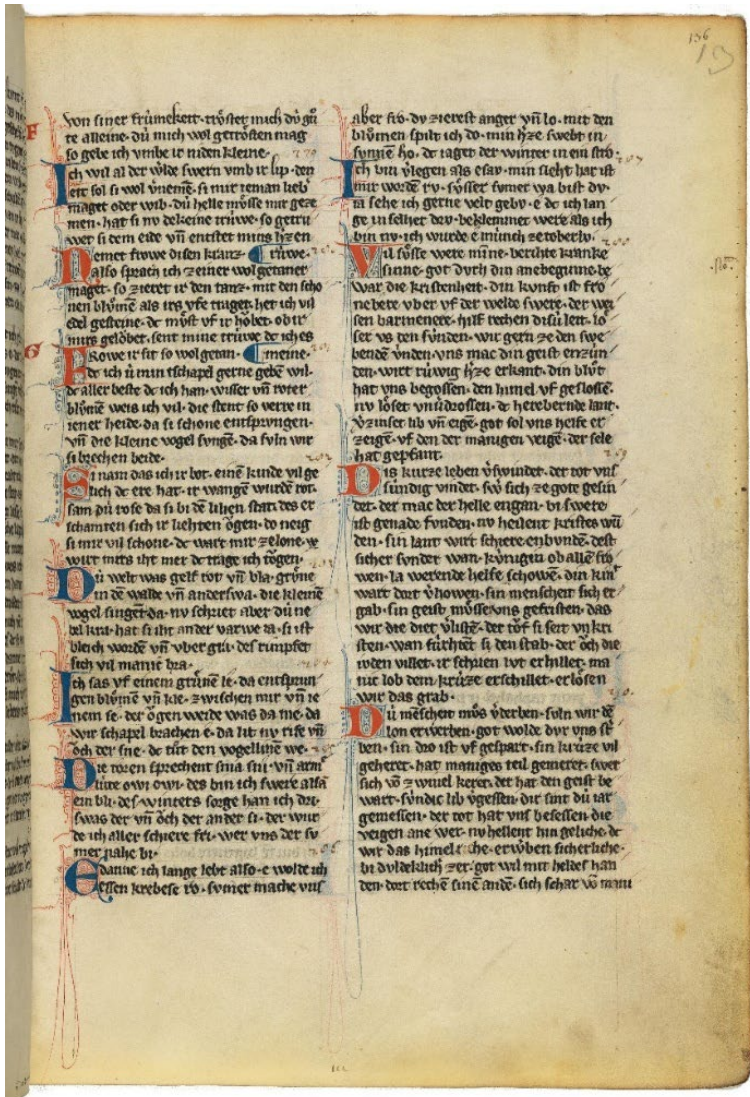 136
13
von siner frúmekeit· trôstet mich dv́ gů
te alleine· dú mich wol getrôsten mag
so gebe ich vmbe ir niden kleine·
Ich wil al der wlde swern vmb ir lip· den
eit sol si wol v̄nemē· si mir ieman lieb
maget oder wib· dú helle můsse mir geze
men· hat si nv dekeine trúwe· so getrú
wet si dem eide vn̄ entstet mins h̾zen
Nemet frowe disen kranz· trúwe·
also sprach ich zeiner wol getaner
maget· so zieret ir den tanz· mit den scho
nen blůmē als irs vfe traget· het ich vil
edel gesteine· dc můst vf ir hôbet· ob ir
mirs gelôbet· sent mine trúwe dc ich es
Frowe ir sit so wol getan· meine·
dc ich ú min tschapel gerne gebē wil·
dc aller beste dc ich han· wisser vn̄ roter
blůmē weis ich vil· die stent so verre in
iener heide· da si schone entsprungen·
vn̄ die kleine vogel sungē· da suln wir
si brechen beide·
Si nam das ich ir bot· einē kinde vil ge
lich dc ere hat· ir wangē wurdē rot·
sam dú rose da si bi dē lilien stat· des er
schamten sich ir liehten ôgen· do neig
si mir vil schone· dc wart mir ze lone·
wirt mirs iht mer dc trage ich tôgen·
Dú welt was gelf rot vn̄ bla· grůne
in dē walde vn̄ anderswa· die kleinē
vogel sungēt da· nv schriet aber dú ne
bel kra· hat si iht ander varwe ia· si ist
bleich wordē vn̄ vber gra· des rimpfet
sich vil manic bra·
Ich sas vf einem grůnē le· da entsprun
gen blůmē vn̄ kle· zwischen mir vn̄ ie
nem se· der ôgen weide was da me· da
wir schapel brachen e· da lit nv rife vn̄
ôch der sne· dc tůt den vogellinē we·
Die toren sprechent snia sni· vn̄ arm̄
lúte owi owi· des bin ich swere alsā
ein bli· des winters sorge han ich dri·
swas der vn̄ ôch der ander si· der wur
de ich aller schiere fri· wer vns der sv
mer nahe bi·
E danne ich lange lebt also· e wolde ich
essen krebese ro· svmer mache vns
aber fro· dv zierest anger vn̄ lo· mit den
blůmen spilt ich do· min h̾ze swebt in
sunnē ho· dc iaget der winter in ein stro·
Ich bin v̄legen als esav· min sleht har ist
mir wordē rv· sv̂sser sumer wa bist dv·
ia sehe ich gerne velt gebv· e dc ich lan
ge in selher drv· beklemmet were als ich
bin nv· ich wurde e múnch ze toberlv·
Vil sůsse were minne· berihte kranke
sinne· got dvrh din anebeginne· be
war die kristenheit· din kunft ist fro
nebere vber vf der welde swere· der wei
sen barmenere· hilf rechen disú leit· lo
ser vs den súnden· wir gern ze den swe
benden v́nden· vns mac din geist enzún
den· wirt rúwig h̾ze erkant· din blůt
hat vns begossen· den himel vf geslossen·
nv lôset vnv̄drossen· dc herebernde lant·
v̄zinset lib vn̄ eigē· got sol vns helfe er
zeigē· vf den der manigen veigē· der sele
hat gepfant·
Dis kurze leben v̄swindet· der tot vns
súndig vindet· sw̾ sich ze gote gesin
det· der mac der helle engan· bi swere
ist genade funden· nv heilent kristes wū
den· sin lant wirt schiere enbundē· dest
sicher sunder wan· kúnigin ob allē fro
wen· la werende helfe schowen· din kin̄
wart dort v̄howen· sin menscheit sich er
gab· sin geist můsse vns gefristen· das
wir die diet v̄listē· der tôf si seit vnkri
sten· wan fúrhtet si den stab· der ôch die
iuden villet· ir schrien lvt erhillet· ma
nic lob dem krúze erschillet· erlôsen
wir das grab·
Dú mēscheit můs v̄derben· suln wir dē
lon erwerben· got wolde dvr vns st̾
ben· sin dro ist vf gespart· sin krúze vil
geheret· hat maniges teil gemeret· swer
sich vō zwiuel keret· der hat den geist be
wart· súndic lib v̄gessen· dir sint dú iar
gemessen· der tot hat vns besessen· die
veigen ane wer· nv hellent hin geliche· dc
wir das himelriche· erwˀben sicherliche·
bi duldeklich̾ zer· got wil mit heldes han
den· dort rechē sinē andē· sich schar vō mani